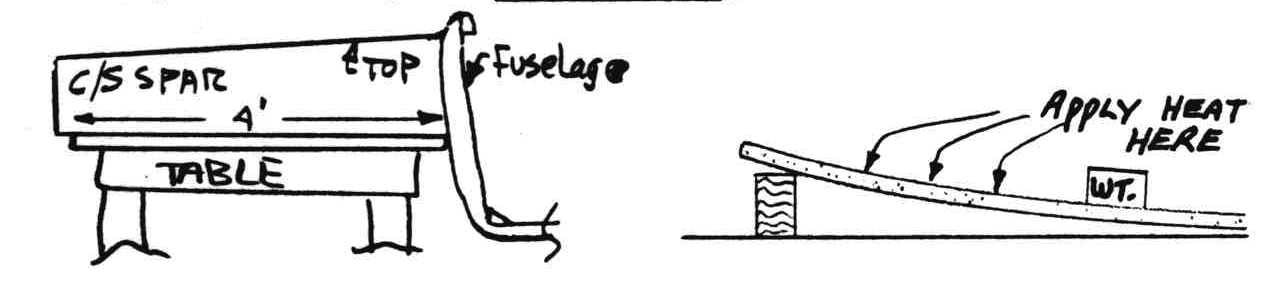 C/S SPAR
TOP
Fuselage
4'
TABLE
APPLY HEAT
HERE
WT.